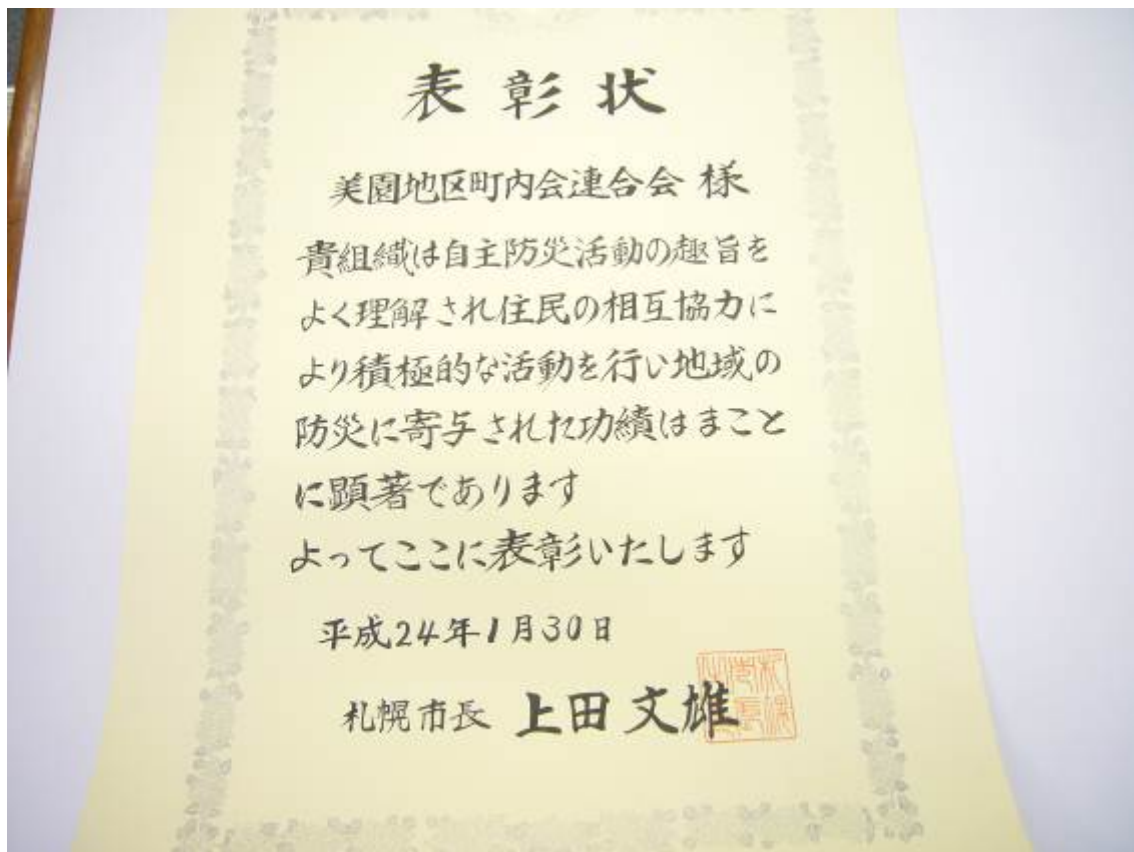 表彰状
美園地区町内会連合会 様
貴組織は自主防災活動の趣旨を
よく理解され住民の相互協力に
より積極的な活動を行い地域の
防災に寄与された功績はまこと
に顕著であります
よってここに表彰いたします
平成24年1月30日
札幌市長 上田文雄